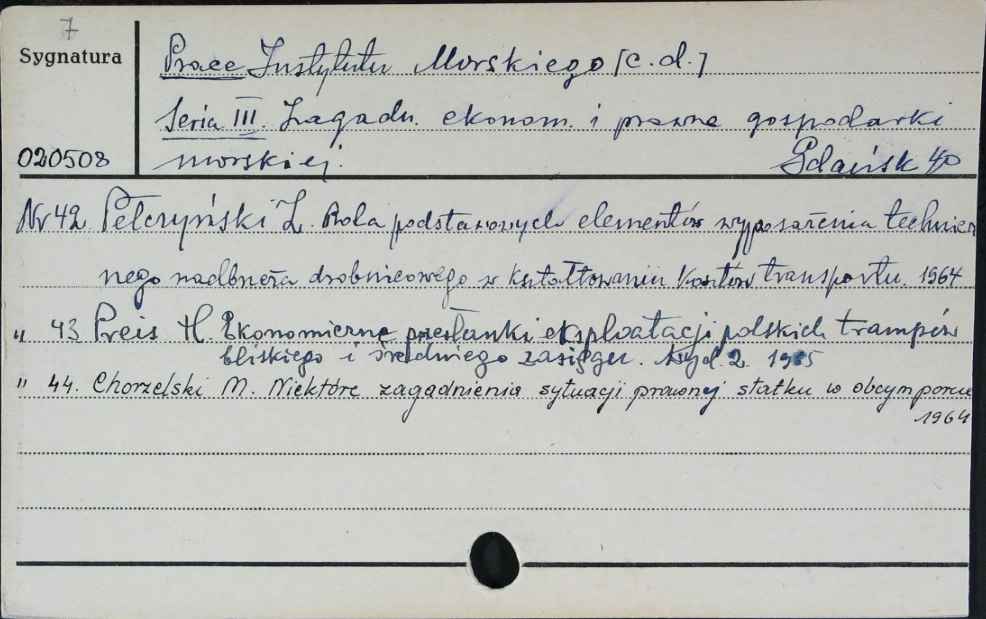 7
Sygnatura
Prace Instytutu Morskiego [c.d.]
Seria III. Zagadn. ekonom. i prawne gospodarki
020508
morskiej. Gdańsk
Nr 42. Pełczyński Z. Rola podstawowych elementów wyposażenia technicz
nego nadbrzeża drobnicowego w kształtowaniu kosztów transportu. 1964
" 43 Preis H. Ekonomiczne przesłanki eksploatacji polskich trampów
bliskiego i średniego zasięgu. Wyd. 2. 1965
" 44. Chorzelski M. Niektóre zagadnienia sytuacji prawnej statku w obcym porcie
1964